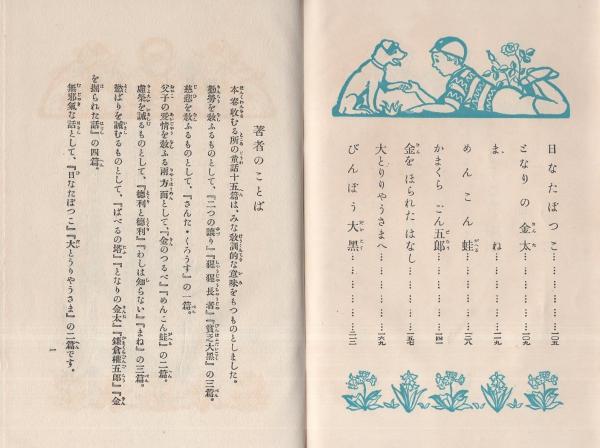 日なたぼつこ…………一〇五
となりの金太…………一一九
まね…………一二九
めんこん蛙…………一三八
かまくらごん五郎…………一四一
金をほられたはなし…………一五七
大とりりやうさまへ…………一六九
びんぼう大黑…………二三二
著者のことば
本卷收むる所の童話十五篇は、みな敎訓的な意味をもつものとしました。
勤勞を敎ふるものとして、『二つの讓り』『猩猩長者』『貧乏大黑』の三篇。
慈悲を敎ふるものとして、『さんた・くろうす』の一篇。
父子の愛情を敎ふ兩方面として、『金のつるべ』『めんこん蛙』の二篇。
虛榮を誡むるものとして、『德利と德利』『わしは知らない』『まね』の三篇。
慾ばりを誡むるものとして、『ばべるの塔』『となりの金太』『鎌倉權五郎』『金
を掘られた話』の四篇。
無邪氣な話として、『日なたぼつこ』『大とうりやうさま』の二篇です。
一